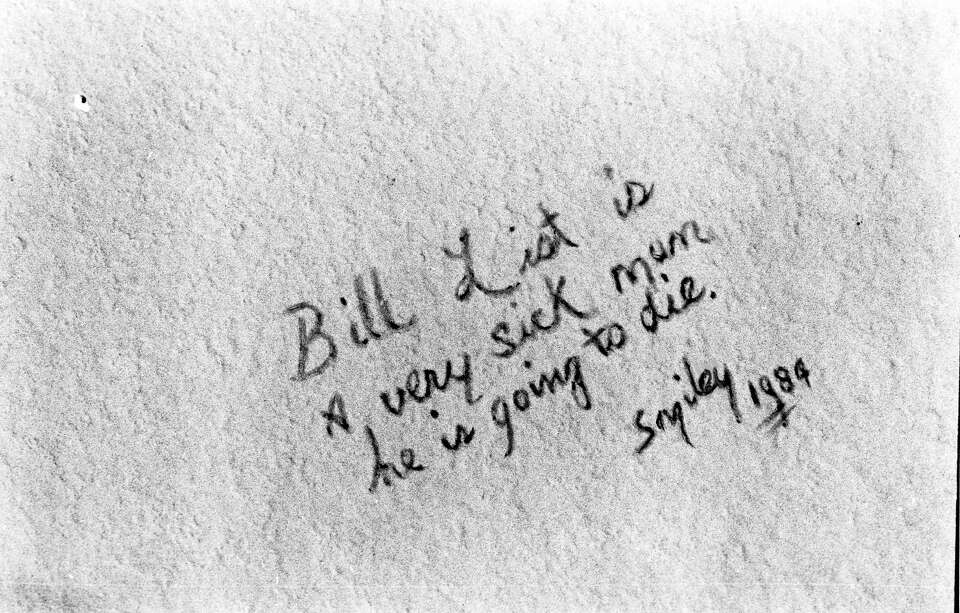 Bill List is
A very sick man
he is going to die.
Smiley 1984